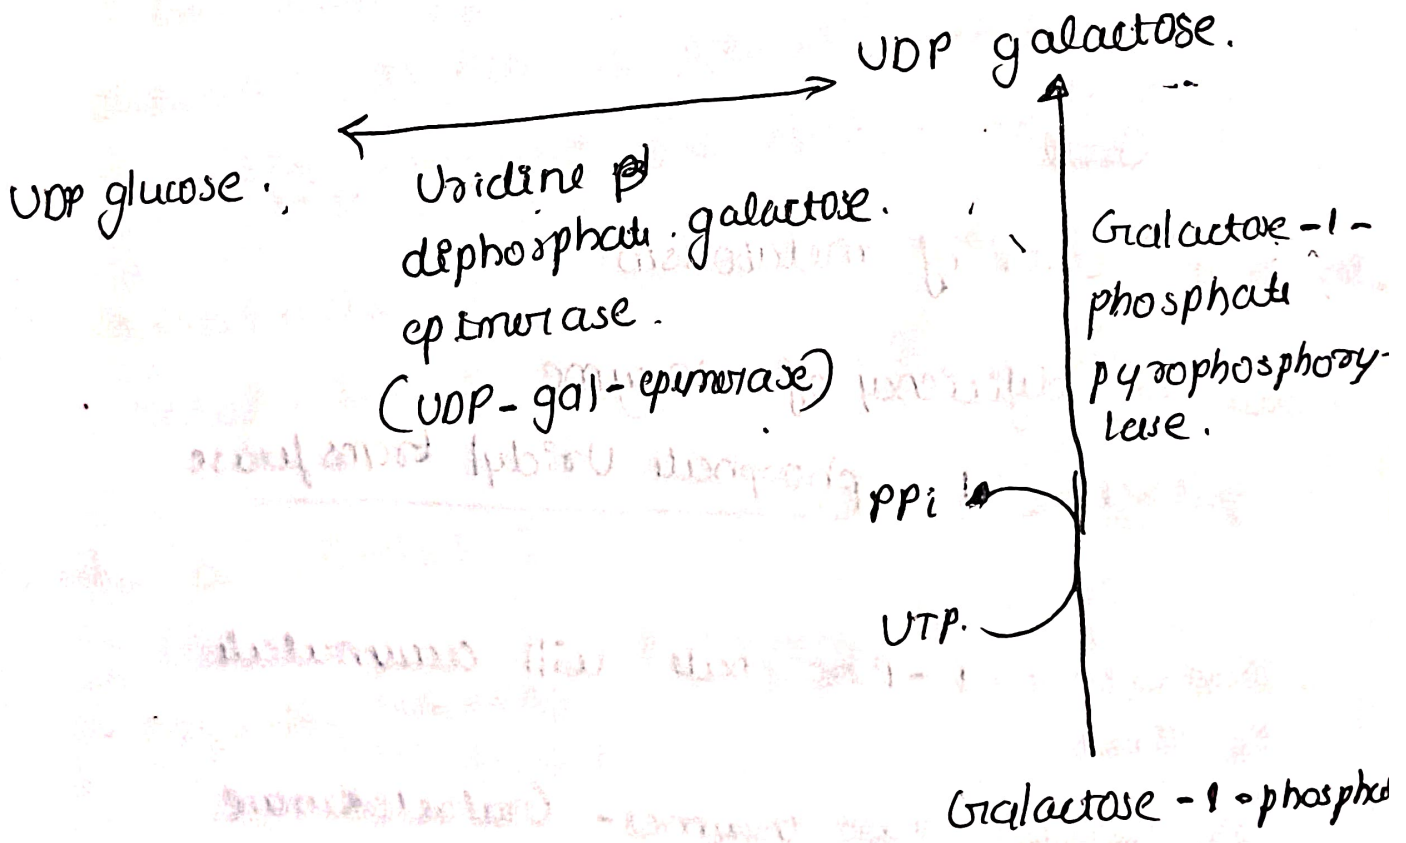 UDP galactose.
UDP glucose.
Uridine
diphosphate galactose.
epimerase.
(UDP-gal-epimerase)
Galactose-1-
phosphate
pyrophosphory-
lase.
PPi
UTP.
Galactose-1-phosphat